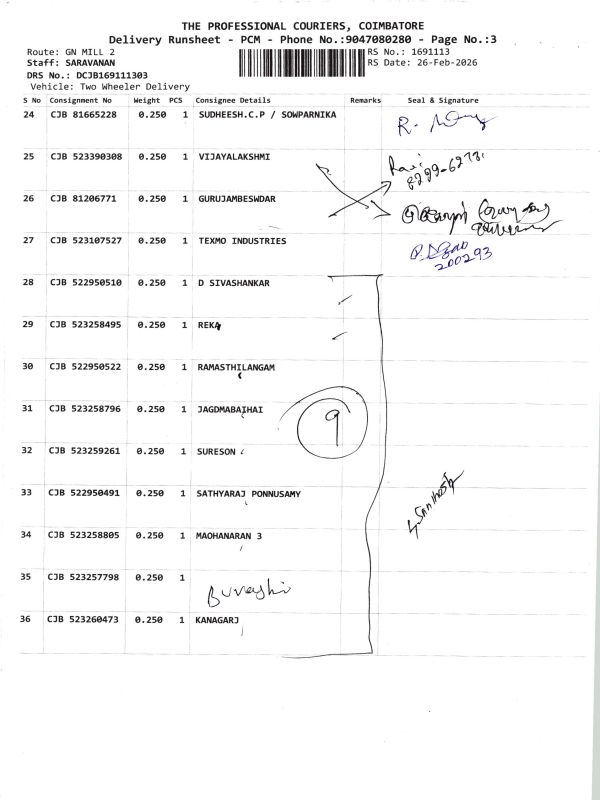 THE PROFESSIONAL COURIERS, COIMBATORE
Delivery Runsheet - PCM - Phone No.:9047080280 - Page No.:3
Route: GN MILL 2 RS No.: 1691113
Staff: SARAVANAN RS Date: 26-Feb-2026
DRS No.: DCJB169111303
Vehicle: Two Wheeler Delivery
S No Consignment No Weight PCS Consignee Details Remarks Seal & Signature
24 CJB 81665228 0.250 1 SUDHEESH.C.P / SOWPARNIKA R.
25 CJB 523390308 0.250 1 VIJAYALAKSHMI Ravi
26 CJB 81206771 0.250 1 GURUJAMBESWDAR
27 CJB 523107527 0.250 1 TEXMO INDUSTRIES
200293
28 CJB 522950510 0.250 1 D SIVASHANKAR
29 CJB 523258495 0.250 1 REKA
30 CJB 522950522 0.250 1 RAMASTHILANGAM
31 CJB 523258796 0.250 1 JAGDMABAIHAI 9
32 CJB 523259261 0.250 1 SURESON
33 CJB 522950491 0.250 1 SATHYARAJ PONNUSAMY
34 CJB 523258805 0.250 1 MAOHANARAN 3
35 CJB 523257798 0.250 1
36 CJB 523260473 0.250 1 KANAGARJ